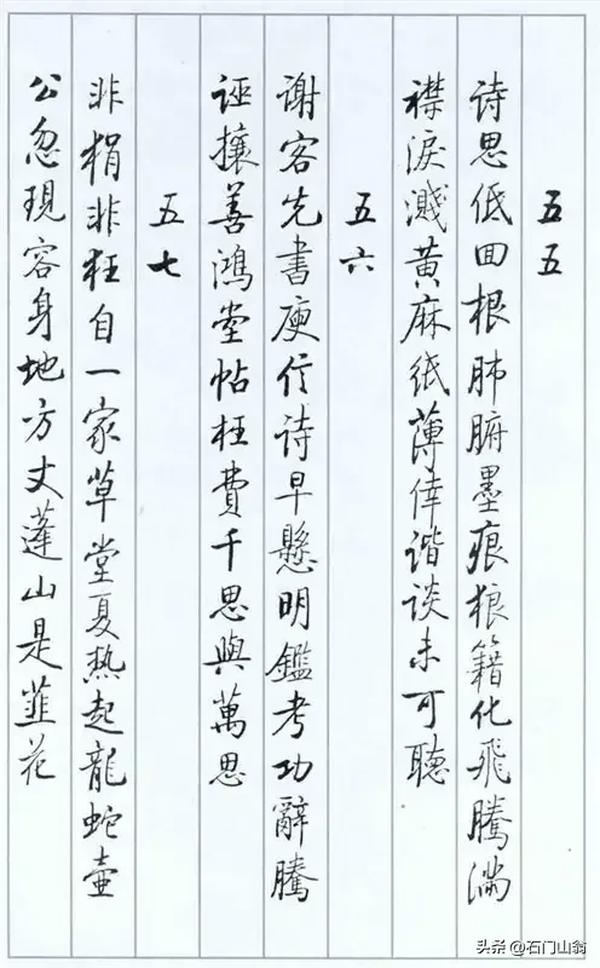 五五
诗思低回根肺腑墨痕狼籍化飛騰满
襟淚濺黄麻纸薄倖谐谈未可聴
五六
谢客先書庾信诗早懸明鑑考功辭騰
诬攘善鴻堂帖枉費千思與萬思
五七
非狷非狂自一家草堂夏热起龍蛇壶
公忽現容身地方丈蓬山是韮花
头条@石门山翁